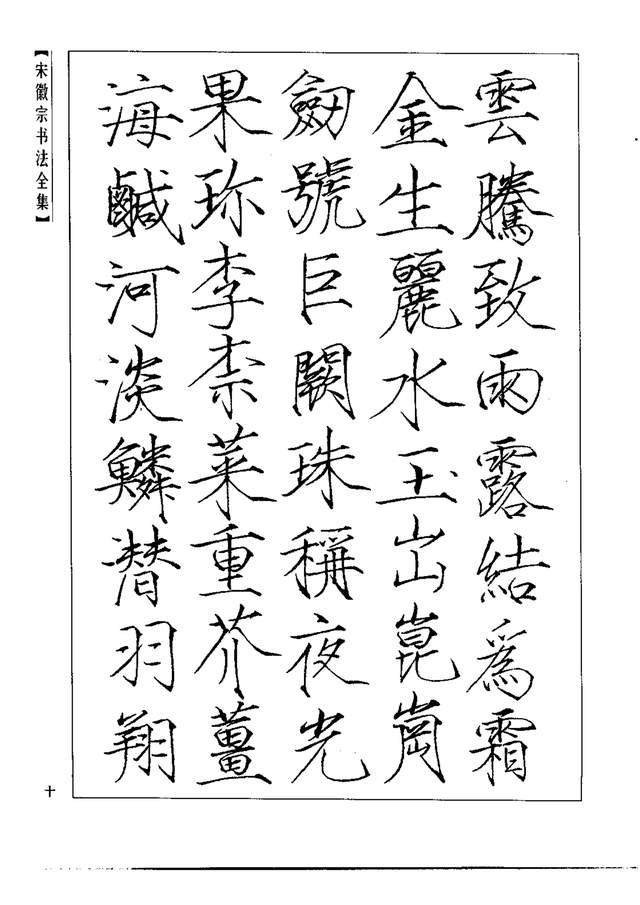 【宋徽宗书法全集】
雲騰致雨露結爲霜
金生麗水玉出崑崗
劔號巨闕珠稱夜光
果珎李柰菜重芥薑
海鹹河淡鱗潛羽翔
十